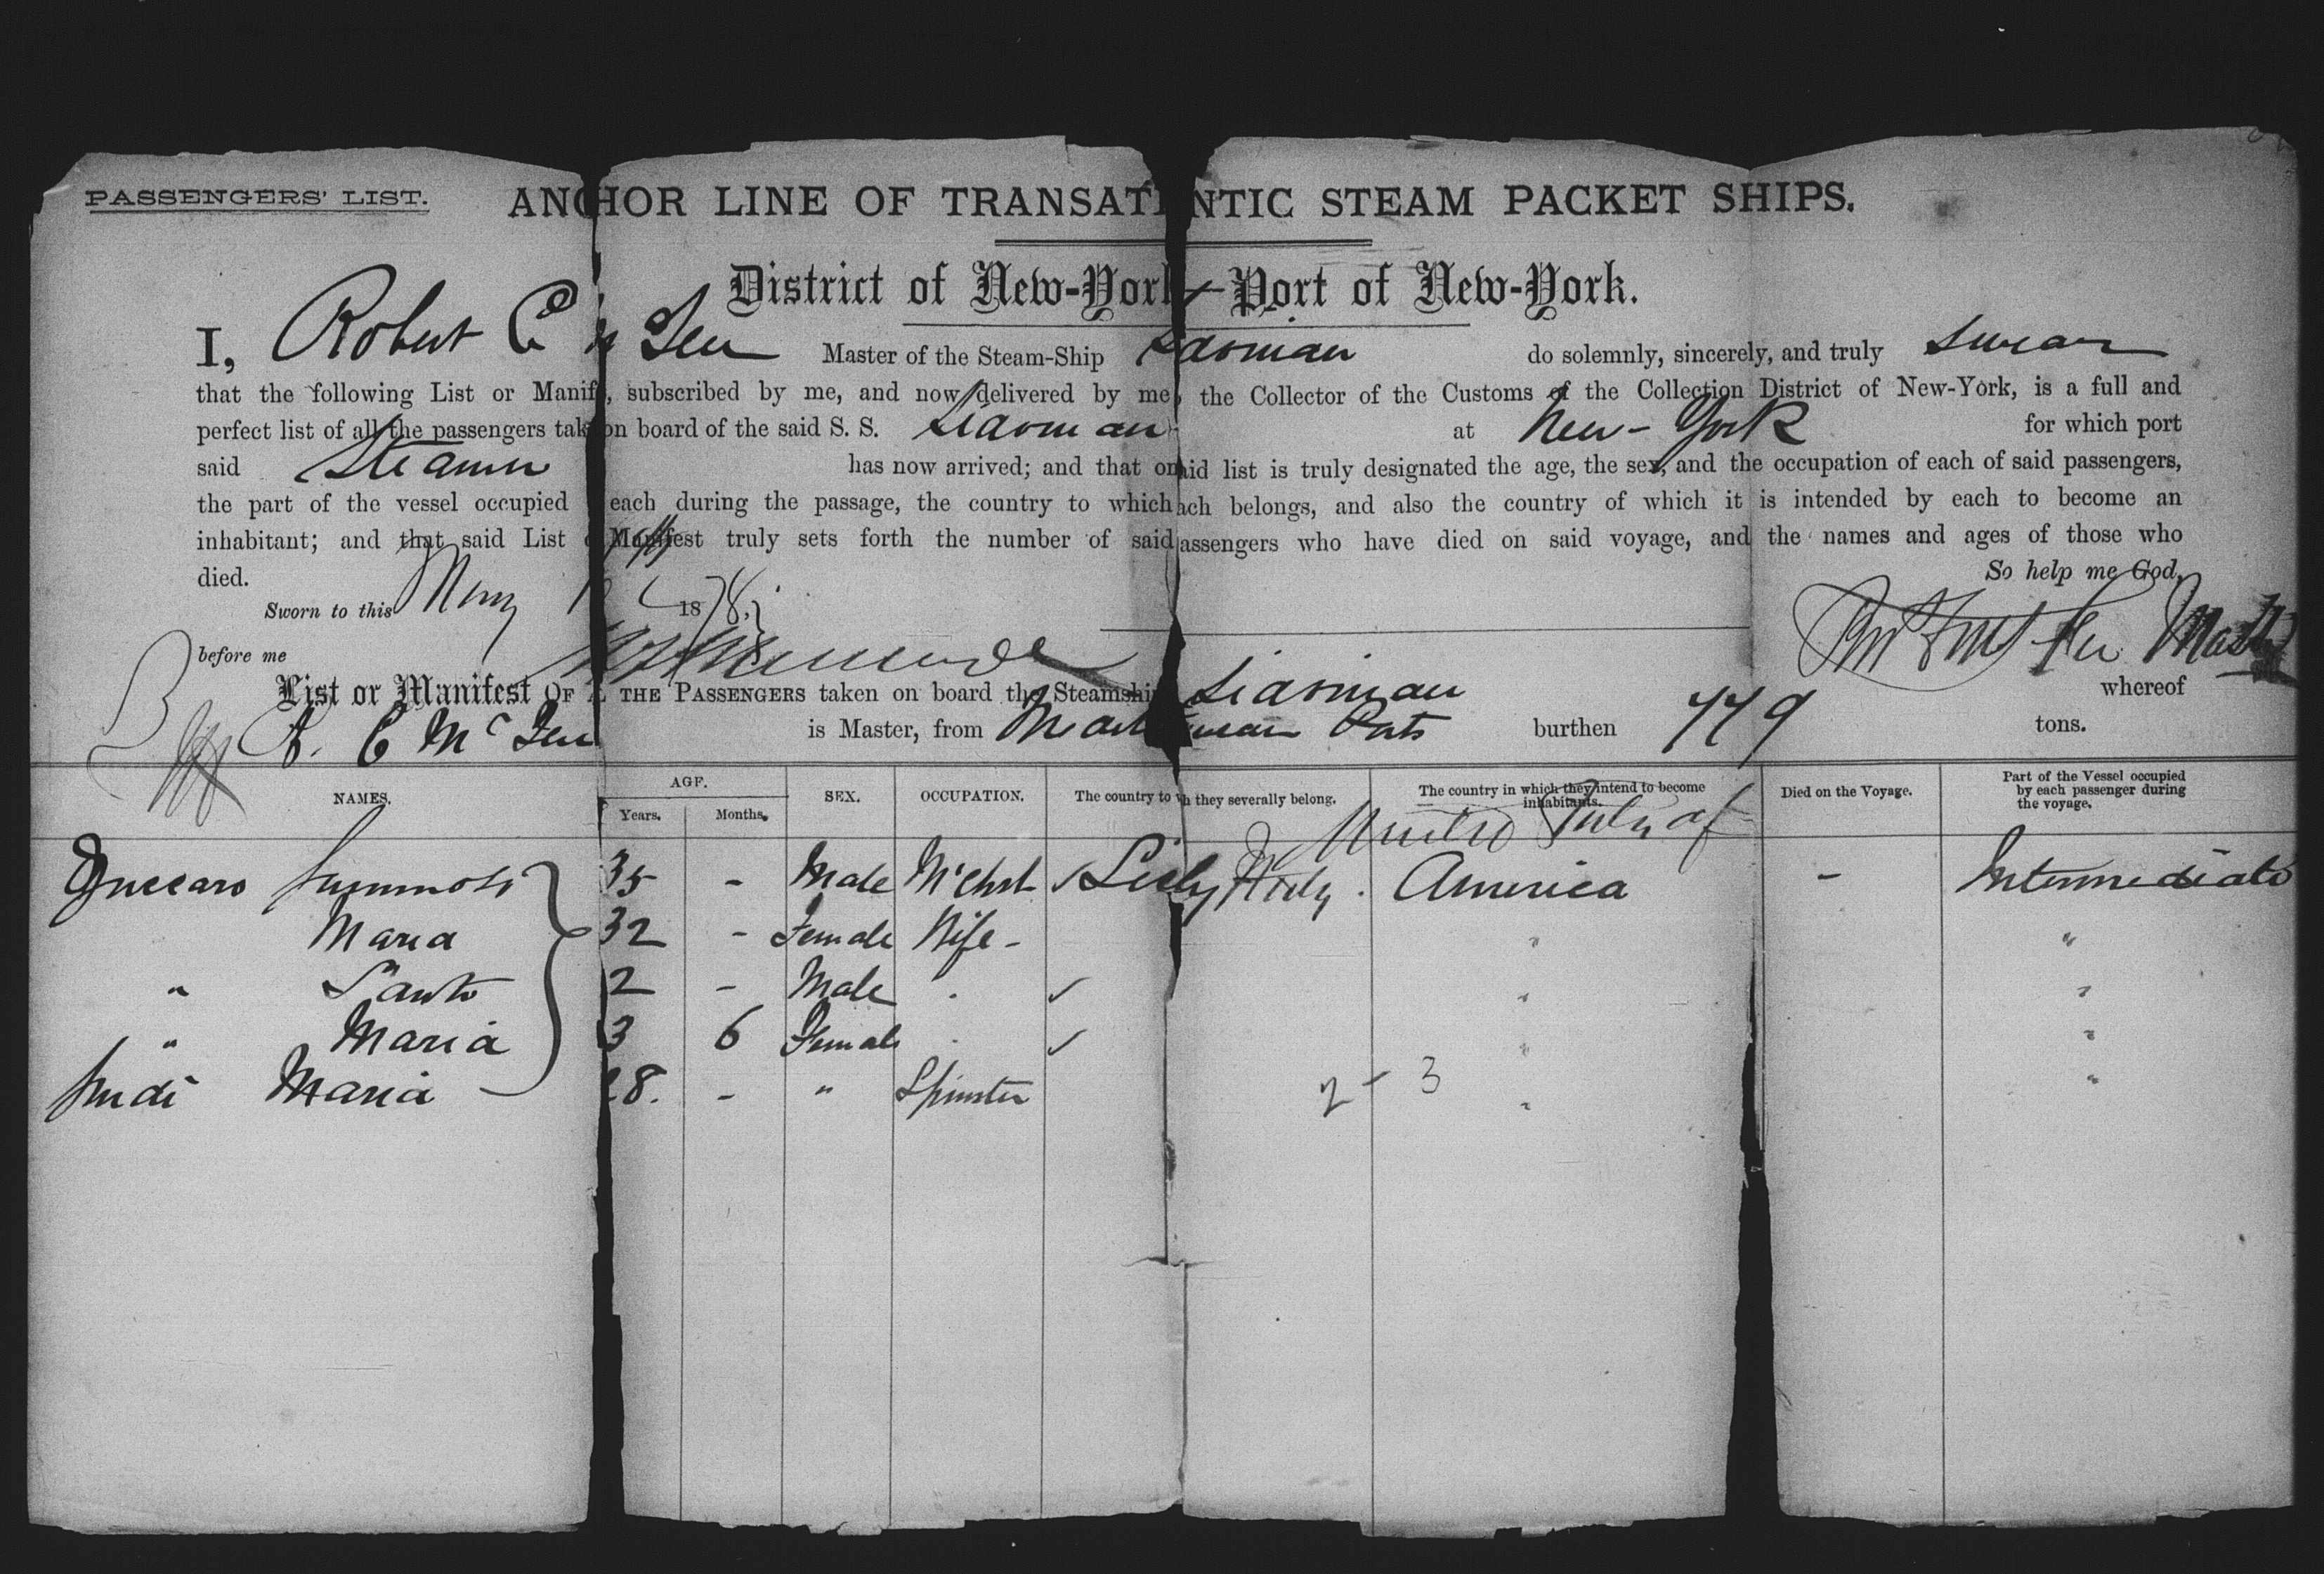 PASSENGERS' LIST. ANCHOR LINE OF TRANSATLNTIC STEAM PACKET SHIPS.
District of New-York — Port of New-York.
I, Robert C Master of the Steam-Ship do solemnly, sincerely, and truly swear
that the following List or Manif, subscribed by me, and now delivered by me, the Collector of the Customs of the Collection District of New-York, is a full and
perfect list of all the passengers tak on board of the said S. S. at New-York for which port
said Steamer has now arrived; and that on aid list is truly designated the age, the sex, and the occupation of each of said passengers,
the part of the vessel occupied each during the passage, the country to which ach belongs, and also the country of which it is intended by each to become an
inhabitant; and that said List Manifest truly sets forth the number of said assengers who have died on said voyage, and the names and ages of those who
died. So help me God.
Sworn to this 1878.
before me
List or Manifest OF THE PASSENGERS taken on board the Steamship whereof
is Master, from Ports burthen 779 tons.
NAMES. AGE. Years. Months. SEX. OCCUPATION. The country to wh they severally belong. The country in which they intend to become inhabitants. Died on the Voyage. Part of the Vessel occupied by each passenger during the voyage.
United
35 - Male America - Intermediate
Maria 32 - Female Wife - " "
" Santo 2 - Male " "
" Maria 3 6 Female " "
Maria 28. - " Spinster 2 - 3 " "